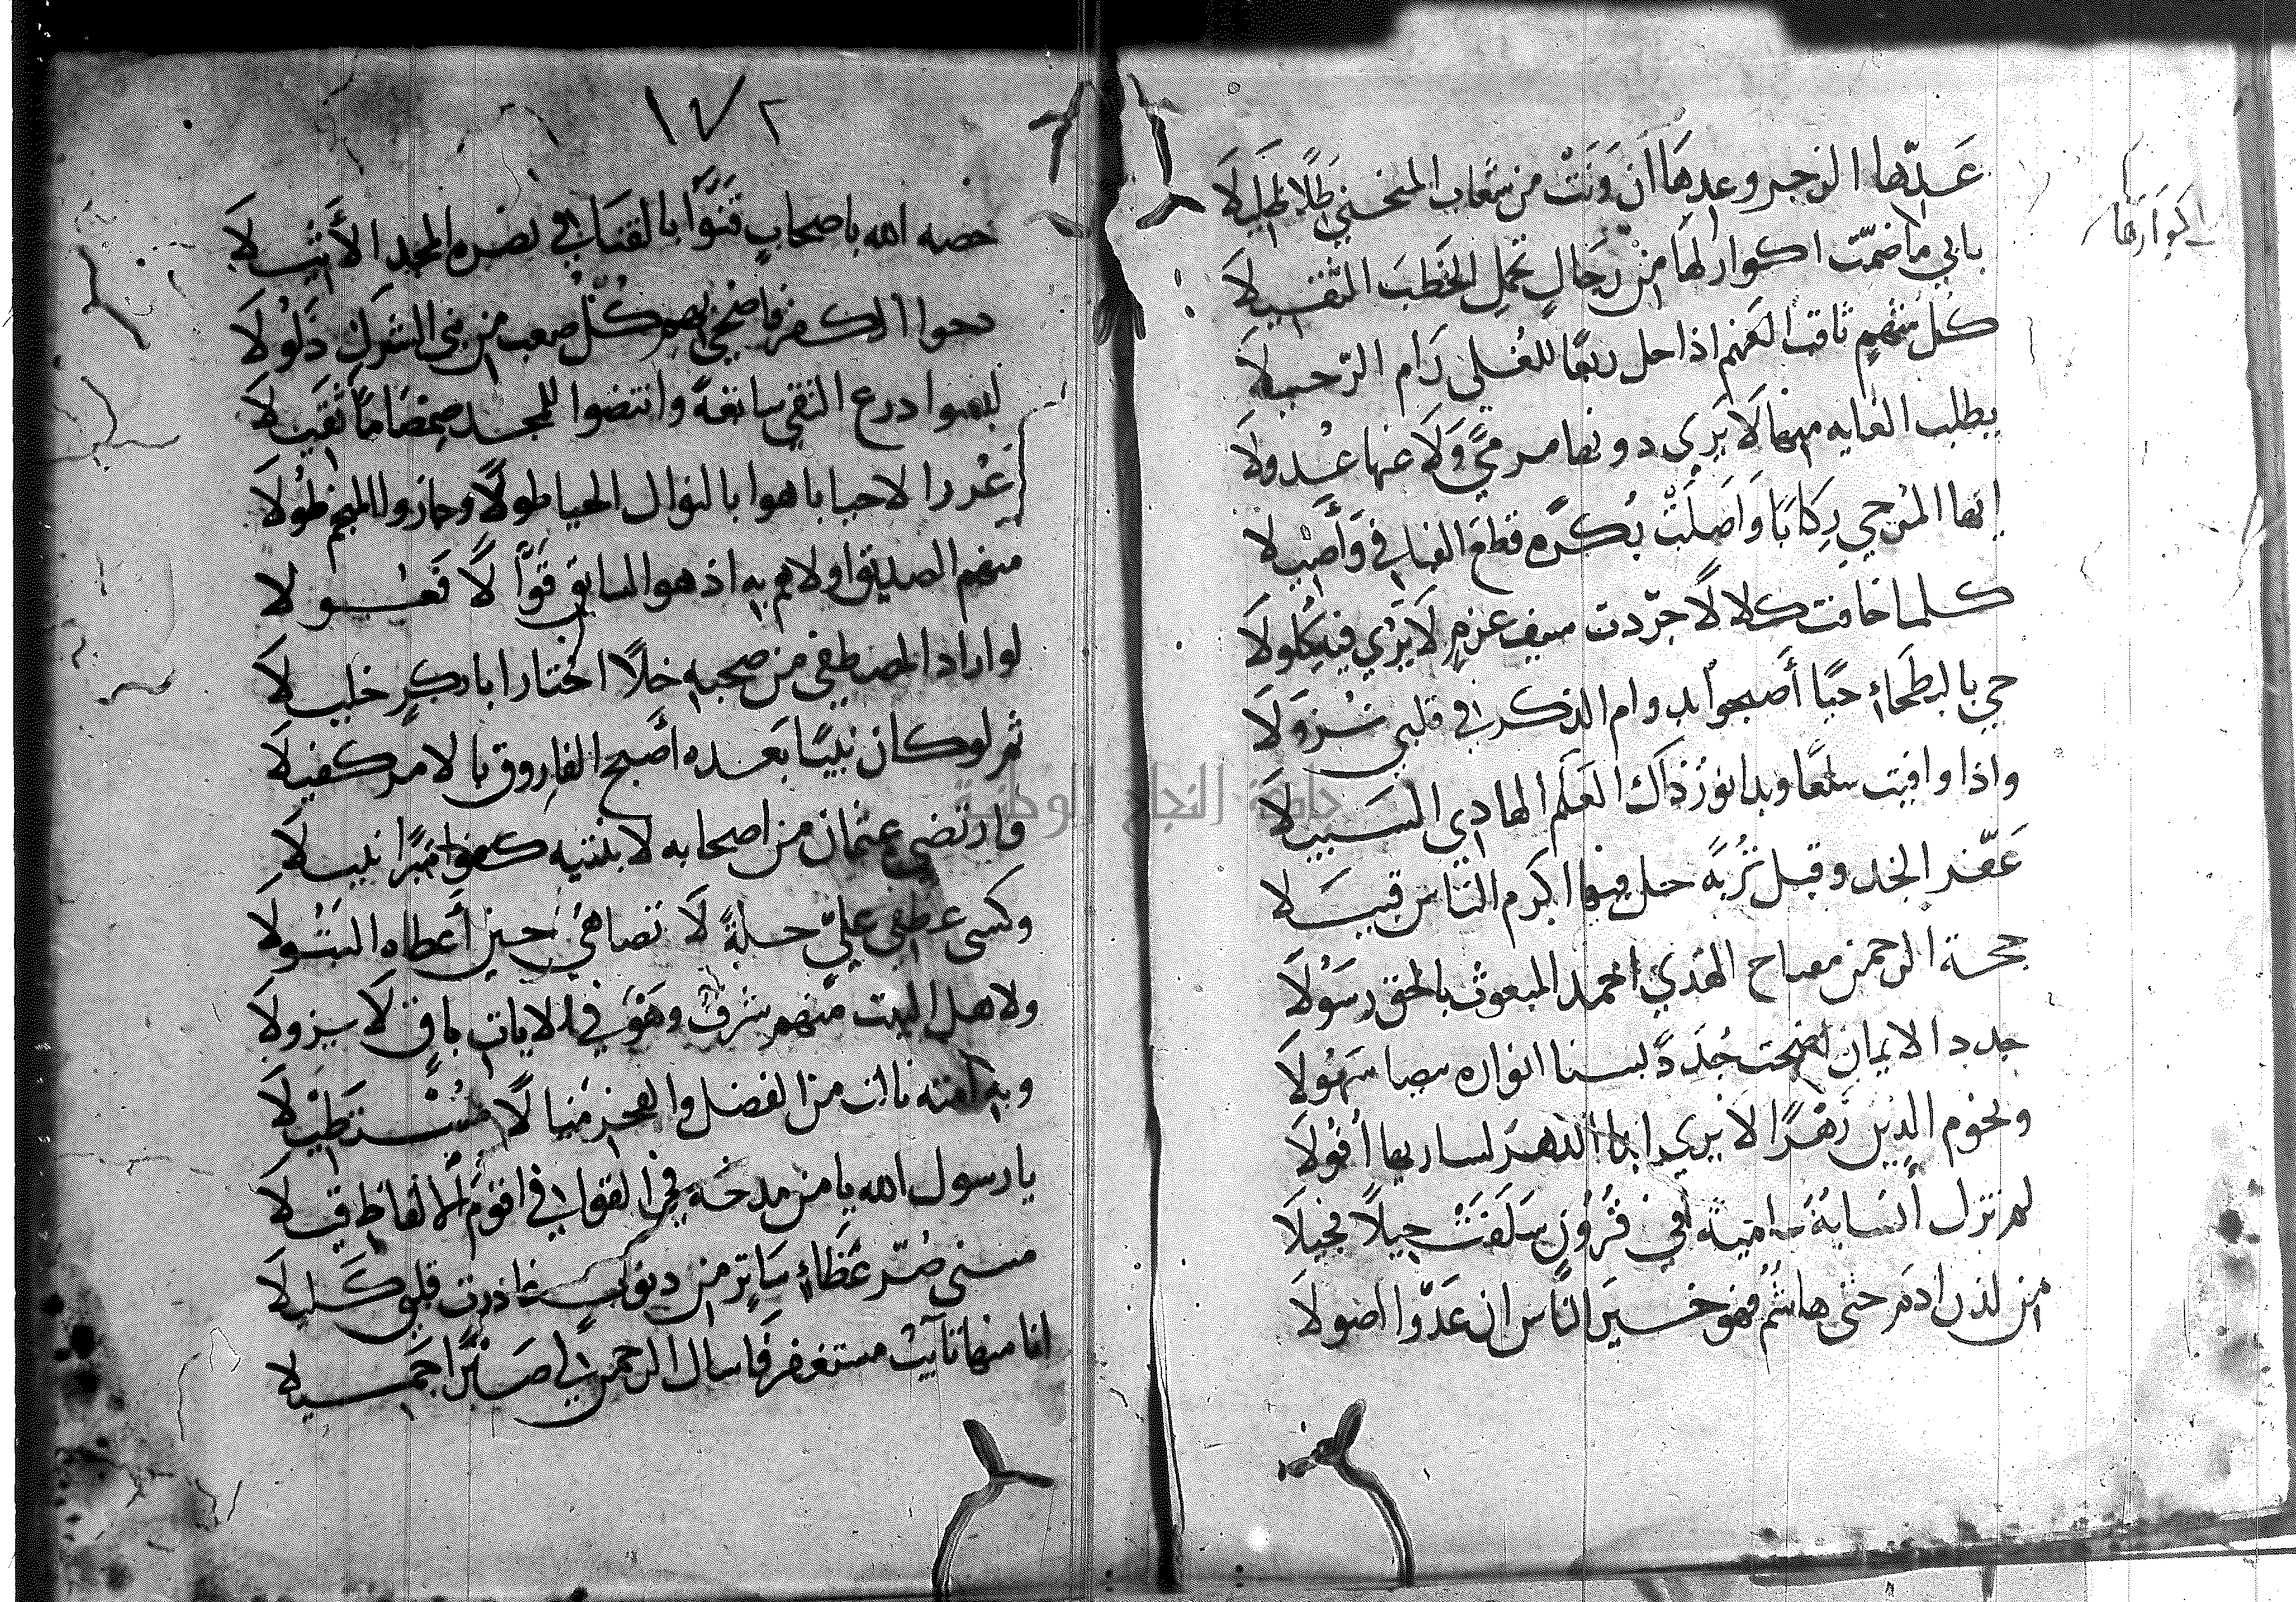 عَدِّها الزجر وعِدها ان وَنَتْ من شعاب المنحنى ظِلًا ظليلَا
بابي ما ضمّت اكوارها من رجالٍ تحمل الخطبَ الثقيلَا
اكوارها
كل شهمٍ ثاقب العزم اذا حل ربعًا للعُلى رَام الرّحيلَا
يطلب الغايه منها لَا يَرى دونها مرمىً وَلَا عنها عُدولَا
ايها المزجي رِكابًا وَاصَلَتْ بُكرَه قطعَ الفيافي وَأصيلا
كلما خافت كلالًا جرّدت سيف عزمٍ لَا يَرى فيه كلولَا
حي بالبطحاء حيًا أصبحوا بدوام الذكر في قلبي نُزولَا
واذا وافيت سلعًا وبدا نورُ ذاك العَلَم الهادى السَبيلا
عَفّر الخد وقبل تُربَةً حل فيها اكرم الناس قبيلا
حجة الرحمن مصباح الهدي احمد المبعوث بالحق رسولَا
جدد الايمان اضحت جُدَدًا بسنا انواره بيضا سهُولَا
ونجوم الدين زُهْرًا لا يرى ابدا الدهر لساريها أفولَا
لم تزل أنسابهُ سامية في قُرُونٍ سلَفَتْ جيلاً فجيلَا
من لدن ادم حتى هاشم فهو خير الناس ان عَدّوا اصولَا
١٧٢
خصه الله باصحابٍ ثَوَوْا بالقنا في نصره المجد الأثيلَا
دحوا الكفر فاضحى بهم كُلُّ صعب من بني الشرك ذَلُولَا
لبسوا درع التقى سابغةً وانتضوا للمجد صمصامًا ثقيلَا
غُررا لاحيا باهوا بالنوال الحيا طولًا وحازوا المجم طُولَا
منهم الصديق اولاهم به اذ هو السابق قوًّا لًا فَعُولا
لو اراد المصطفى من صحبه خلًا اختار ابا بكرٍ خليلَا
ثم لو كان نبيًا بعده أصبح الفاروق بالامر كفيلَا
وارتضى عثمان من اصحابه لابنتيه كفوا برًا نبيلَا
وكسى عطفى عليّ حلةً لَا تضاهى حين أعطاه البتولَا
ولاهل البيت منهم شرفٌ وهوَ في الايات باقٍ لَا يزولَا
وبه امته نالت من الفضل والفخر منالًا مُسْتطيلَا
يا رسول الله يا من مدحه في القوافي اقوَم الالفاظ قيلَا
مسنى ضُرّ عَظَائم سَايرٍ من ذنوبي غادرت قلبى كَليلَا
انا منها تائبٌ مستغفر فاسال الرحمن لي صَبْرًا جميلا